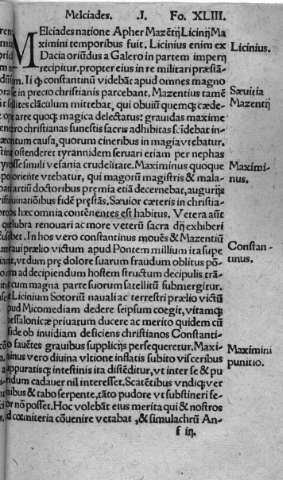 Melciades. .I. Fo. XLIII.
MElciades natione Apher Mazētij Licinij Ma
ximini temporibus fuit. Licinius enim ex Licinius.
Dacia oriūdus a Galero in partem imperij
recipitur, propter eius in re militari præstā-
Ii q̄ constantinū videbāt apud omnes magno
in precio christianis parcebant. Mazentius tamē Sæuitia
clāculum mitrebat, qui obuiū quemq; cæde- Mazentij
arte quoq; magica delectatus: grauidas maxime
christianas funestis sacris adhibitas s. idebat in-
causa, quorum cineribus in magia vtebatur,
ostenderet tyrannidem seruari etiam per nephas
simili vesania crudelitate. Maximinus quoque Maximi-
oriente vtebatur, qui magorū magistris & mala- nus.
artiū doctoribus premia etiā decernebat, augurijs
fidē præstās. Sæuior cæteris in christia-
hæc omnia contēnentes est habitus. Vetera aūt
renouari ac more veterū sacra dij exhiberi
In hos vero constantinus moues & Mazentiū
prælio victum apud Pontem millium ita supe Constan-
vt dum præ dolore suarum fraudum oblitus pō- tinus.
ad decipiendum hostem structum decipulis trā-
cum magna parte suorum satellitū submergitur.
Licinium Sotoriū nauali ac terrestri prælio victū
apud Nicomediam dedere seipsum coegit, vitamq;
priuatum ducere ac merito quidem cū
ob inuidiam desciscens christianos Constanti-
fauētes grauibus supplicijs persequeretur. Maxi- Maximini
vero diuina vltione instatis subito visceribus punitio.
intestinis ita distēditur, vt inter se & pu
cadauer nil interesset. Scatētibus vndiq; ver
& tabo serpente, tāto pudore vt substineri se-
nō posset. Hoc volebāt eius merita qui & nostros
cœmiteria cōuenire vetabat, & simulachrū An-
f iij.